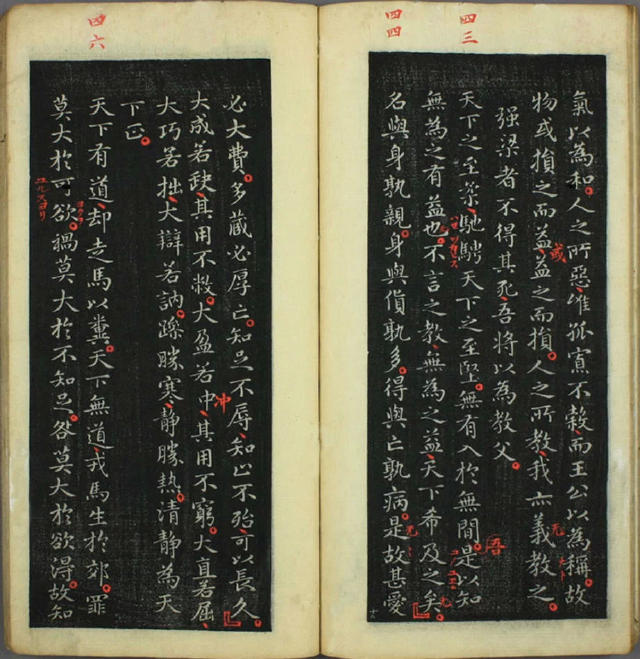 四三
四四
氣以為和人之所惡唯孤寡不穀而王公以為稱故
物或損之而益益之而損人之所教我亦義教之
強梁者不得其死吾將以為教父
天下之至柔馳騁天下之至堅無有入於無間是以知
無為之有益也不言之教無為之益天下希及之矣
名與身孰親身與貨孰多得與亡孰病是故甚愛
四六
必大費多藏必厚亡知足不辱知止不殆可以長久
大成若缺其用不敝大盈若中其用不窮大直若屈
大巧若拙大辯若訥躁勝寒靜勝熱清靜為天
下正
天下有道却走馬以糞天下無道戎馬生於郊罪
莫大於可欲禍莫大於不知足咎莫大於欲得故知
或
吾
冲